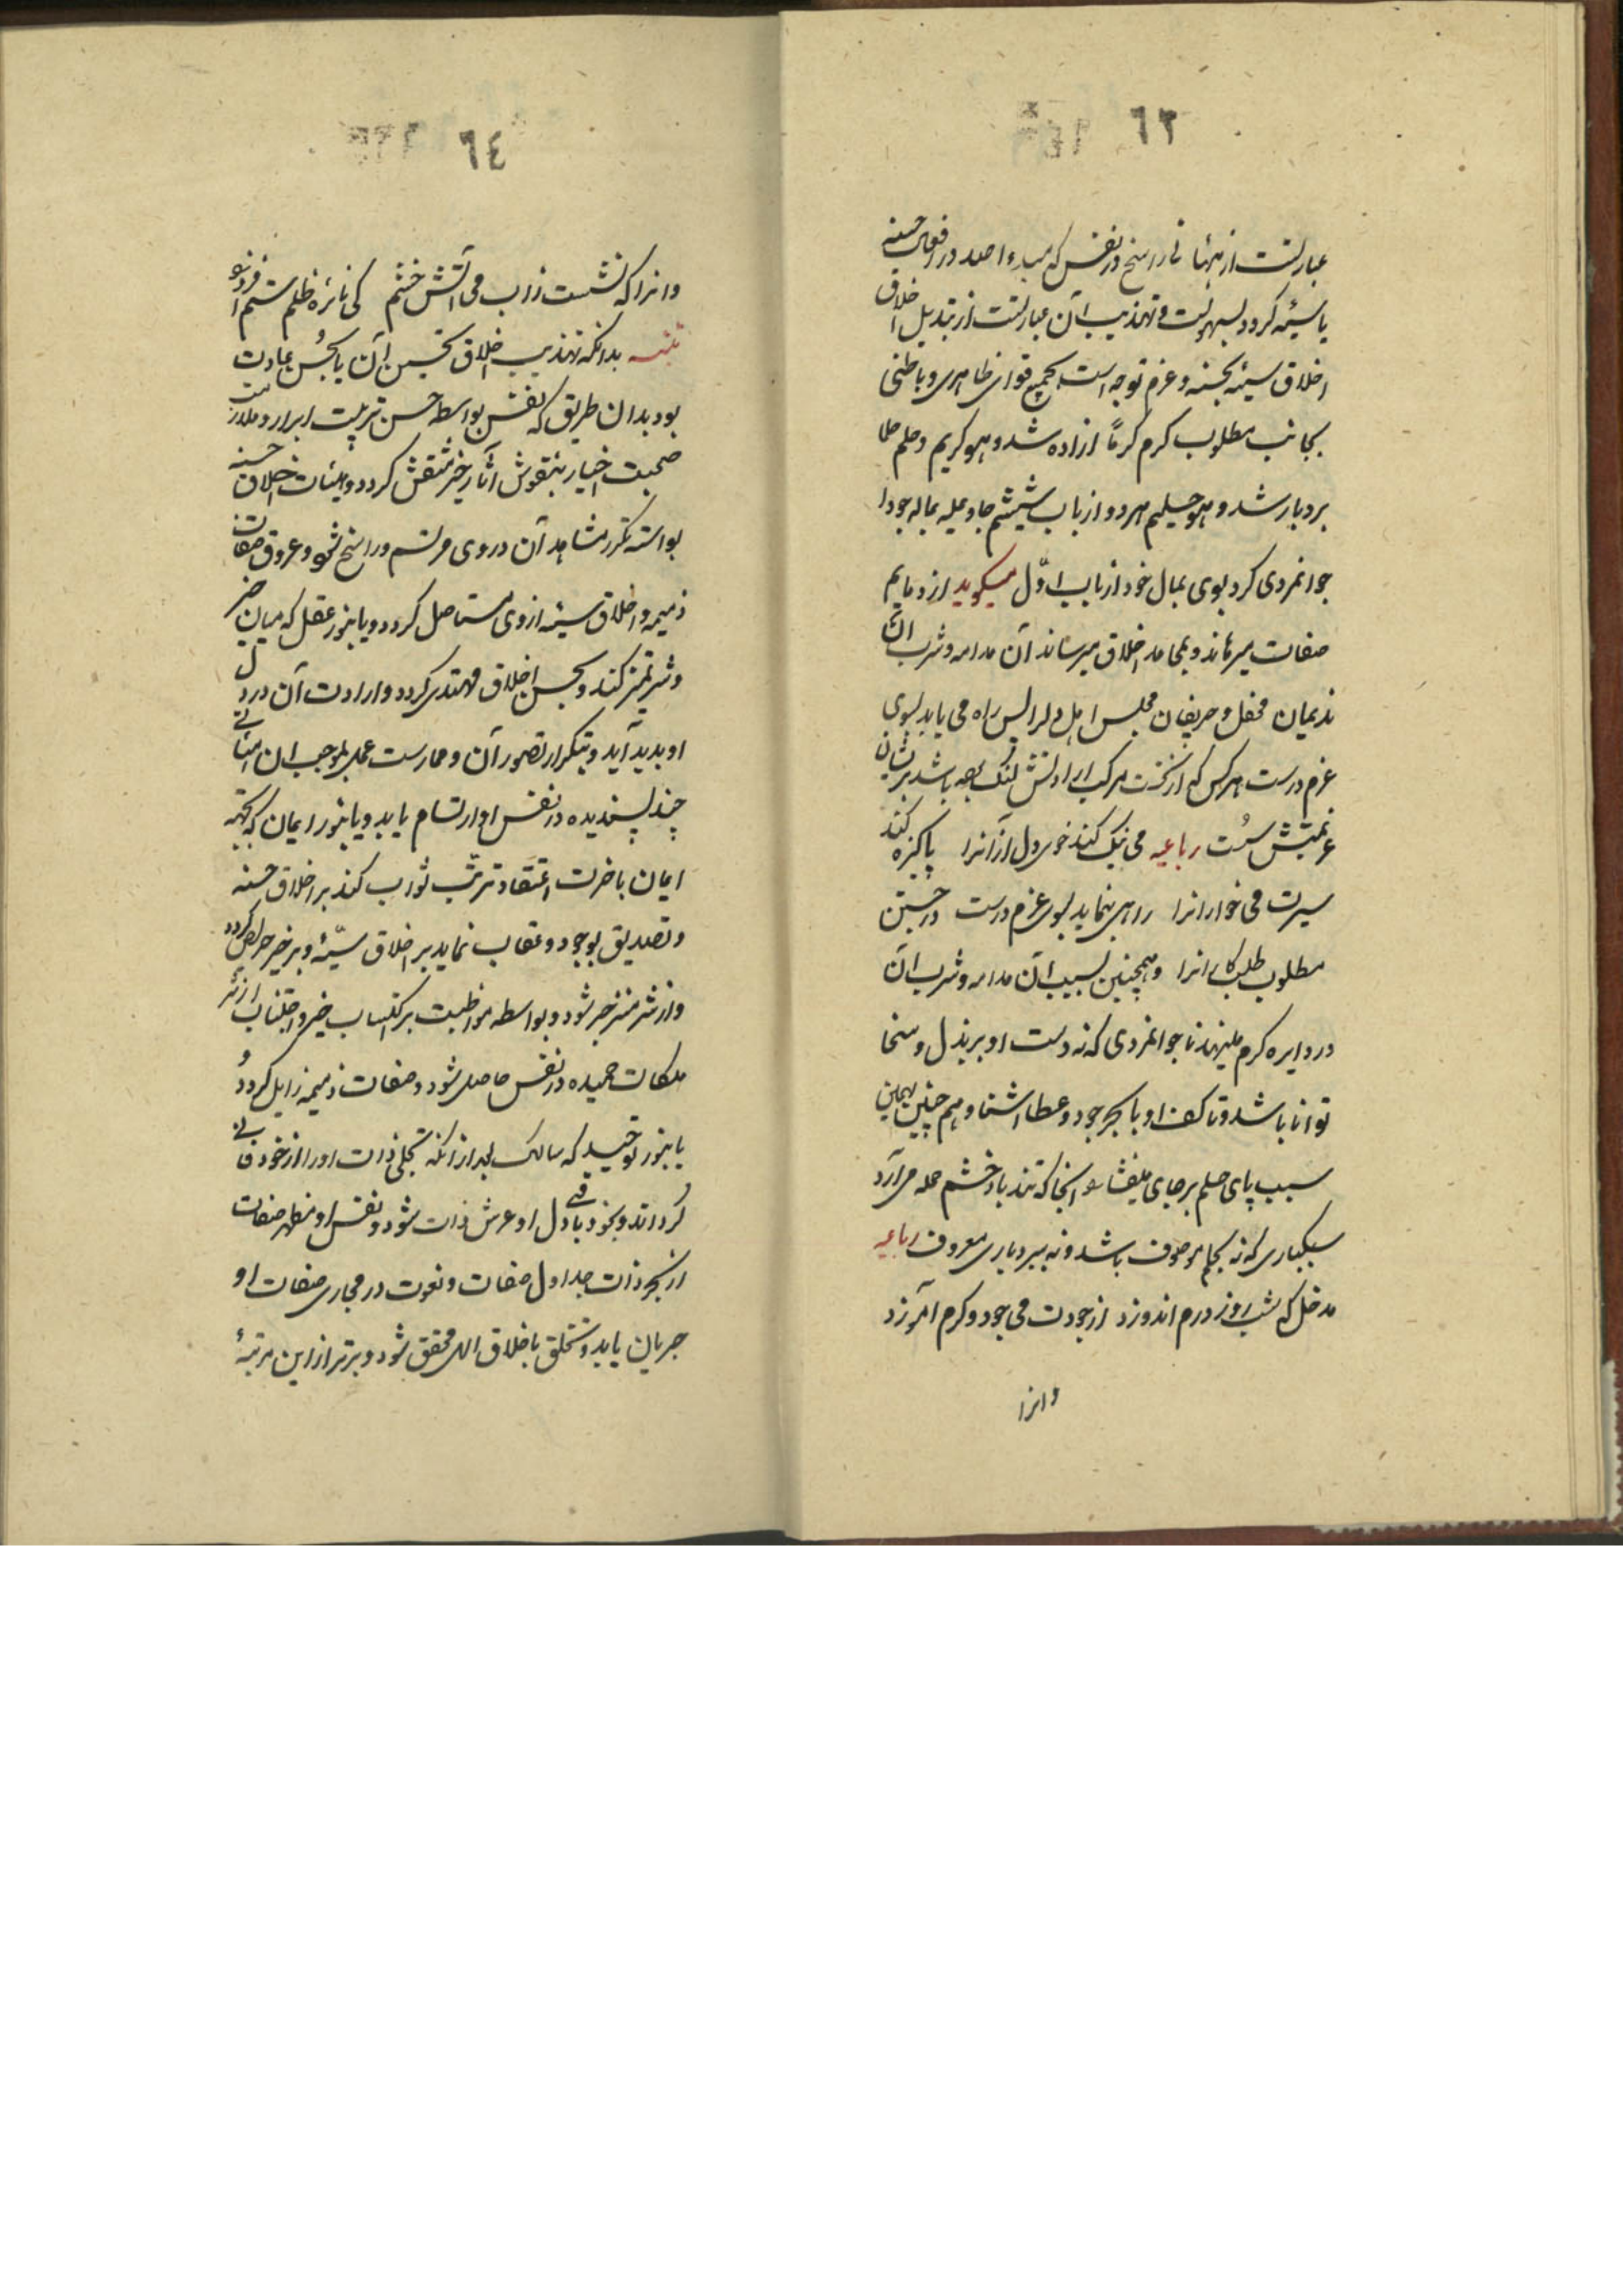 ٦٣
عبارتست از هیأتی راسخ در نفس که مبدء صدور افعال حسنه
یا سیّئه گردد بسهولت و تهذیب آن عبارتست از تبدیل اخلاق
اخلاق سیئه بحسنه و عزم توجه است بجمیع قوای ظاهری و باطنی
بجانب مطلوب کرم کرمًا ازاده شد و هو کریم و حلم حلما
بردبار شد و هو حلیم هردو از باب ششم جاد علیه بماله جودا
جوانمردی کرد بوی بمال خود از باب اوّل میگوید از ذمایم
صفات میرهاند و بمحامد اخلاق میرساند آن مدامه و شرب آن
ندیمان محفل و حریفان مجلس اهل دل راه می یابد بسوی
عزم درست هرکس که از نخست مرکب ارادتش لنگ بوده باشد
عزیمتش سُست رباعیه می نیک کند خوی دل ازآنرا پاکیزه کند
سیرت می خوارانرا راهی بنماید بسوی عزم درست در جستن
مطلوب طلبکارانرا و همچنین بسبب آن مدامه و شرب آن
در دایره کرم مینهد پا جوانمردی که نه دست او بر بذل و سخا
توانا باشد و نه کف او با بحر جود و عطا اشنا و هم چنین بهمین
سبب پای حلم برجای میفشارد آنجا که تند باد خشم حمله می آرد
سبکباری که نه بحلم موصوف باشد و نه ببردباری معروف رباعیه
مدخل که شب و روز درم اندوزد از جودت می جود و کرم آموزد
وانرا
٦٤
وانرا که نشست زاب می آتش خشم کی نائره ظلم ستم افروزد
تنبیه بدانکه تهذیب اخلاق و تحسین آن یا بحُسن عادت
بود بدان طریق که نفس بواسطه حسن تربیت ابرار و ملازمت
صحبت اخیار بنقوش آثار خیر منتقش گردد و هیئات اخلاق حسنه
بواسطه تکرر مشاهد آن در وی مرتسم و راسخ شود و عروق صفات
ذمیمه و اخلاق سیئه از وی مستاصل گردد و یا بنور عقل که میان خیر
و شر تمیز کند و بحسن اخلاق مهتدی گردد و ارادت آن در دل
او پدید آید و بتکرار تصور آن و ممارست عمل بموجب آن هیئاتی
چند پسندیده در نفس او ارتسام یابد و یا بنور ایمان که بجهة
ایمان باخرت اعتقاد ترتّب ثواب کند بر اخلاق حسنه
و تصدیق بوجود عقاب نماید بر اخلاق سیّئه و بر خیر حریص گردد
و از شر منزجر شود و بواسطه مواظبت بر اکتساب خیر و اجتناب از شر
ملکات حمیده در نفس حاصل شود و صفات ذمیمه زایل گردد و
یا بنور توحید که سالک بعد از آنکه تجلی ذات او را از خود فانی
گرداند و بخود باقی دل او عرش ذات شود و نفس او مظهر صفات
از بحر ذات جداول صفات و نعوت در مجاری صفات او
جریان یابد و تخلق باخلاق الله محقق شود و برتر از این مرتبۀ